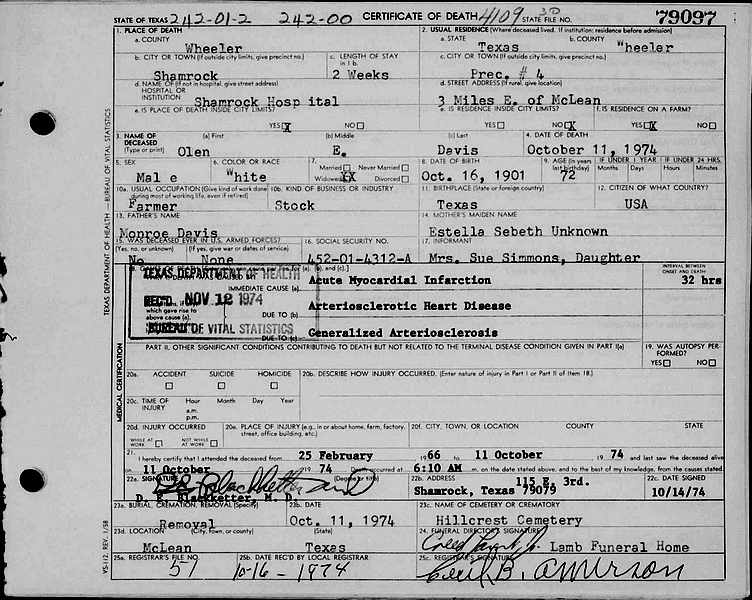 STATE OF TEXAS 242-01-2 242-00 CERTIFICATE OF DEATH 4109 STATE FILE NO. 79097
1. PLACE OF DEATH 2. USUAL RESIDENCE (Where deceased lived. If institution: residence before admission)
a. COUNTY Wheeler a. STATE Texas b. COUNTY "heeler
b. CITY OR TOWN (If outside city limits, give precinct no.) Shamrock c. LENGTH OF STAY in 1 b. 2 Weeks c. CITY OR TOWN (If outside city limits, give precinct no.) Prec. # 4
d. NAME OF (If not in hospital, give street address) HOSPITAL OR INSTITUTION Shamrock Hosp ital d. STREET ADDRESS (If rural, give location) 3 Miles E. of McLean
e. IS PLACE OF DEATH INSIDE CITY LIMITS? YES X NO e. IS RESIDENCE INSIDE CITY LIMITS? YES NO X f. IS RESIDENCE ON A FARM? YES X NO
3. NAME OF DECEASED (Type or print) (a) First Olen (b) Middle E. (c) Last Davis 4. DATE OF DEATH October 11, 1974
5. SEX Mal e 6. COLOR OR RACE White 7. Married Never Married Widowed XX Divorced 8. DATE OF BIRTH Oct. 16, 1901 9. AGE (In years last birthday) 72 IF UNDER 1 YEAR Months Days IF UNDER 24 HRS. Hours Min.
10a. USUAL OCCUPATION (Give kind of work done during most of working life, even if retired) Farmer 10b. KIND OF BUSINESS OR INDUSTRY Stock 11. BIRTHPLACE (State or foreign country) Texas 12. CITIZEN OF WHAT COUNTRY? USA
13. FATHER'S NAME Monroe Davis 14. MOTHER'S MAIDEN NAME Estella Sebeth Unknown
15. WAS DECEASED EVER IN U.S. ARMED FORCES? (Yes, no, or unknown) No (If yes, give war or dates of service) None 16. SOCIAL SECURITY NO. 452-01-4312-A 17. INFORMANT Mrs. Sue Simmons, Daughter
TEXAS DEPARTMENT OF HEALTH
REC'D NOV 12 1974
BUREAU OF VITAL STATISTICS
IMMEDIATE CAUSE (a) Acute Myocardial Infarction INTERVAL BETWEEN ONSET AND DEATH 32 hrs
which gave rise to above cause (a), DUE TO (b) Arteriosclerotic Heart Disease
DUE TO (c) Generalized Arteriosclerosis
PART II. OTHER SIGNIFICANT CONDITIONS CONTRIBUTING TO DEATH BUT NOT RELATED TO THE TERMINAL DISEASE CONDITION GIVEN IN PART I(a) 19. WAS AUTOPSY PERFORMED? YES NO
20a. ACCIDENT SUICIDE HOMICIDE 20b. DESCRIBE HOW INJURY OCCURRED. (Enter nature of injury in Part I or Part II of Item 18.)
20c. TIME OF INJURY Hour a.m. p.m. Month Day Year
20d. INJURY OCCURRED WHILE AT WORK NOT WHILE AT WORK 20e. PLACE OF INJURY (e.g., in or about home, farm, factory, street, office building, etc.) 20f. CITY, TOWN, OR LOCATION COUNTY STATE
21. I hereby certify that I attended the deceased from 25 February 1966 to 11 October 1974 and last saw the deceased alive
on 11 October 1974 Death occurred at 6:10 AM m. on the date stated above, and to the best of my knowledge, from the causes stated.
22a. SIGNATURE (Degree or title) D. E. Blackketter, M. D. 22b. ADDRESS 115 E. 3rd. Shamrock, Texas 79079 22c. DATE SIGNED 10/14/74
23a. BURIAL, CREMATION, REMOVAL (Specify) Removal 23b. DATE Oct. 11, 1974 23c. NAME OF CEMETERY OR CREMATORY Hillcrest Cemetery
23d. LOCATION (City, town, or county) McLean (State) Texas 24. FUNERAL DIRECTOR'S SIGNATURE Lamb Funeral Home
25a. REGISTRAR'S FILE NO. 57 25b. DATE REC'D BY LOCAL REGISTRAR 10-16-1974 25c. REGISTRAR'S SIGNATURE
TEXAS DEPARTMENT OF HEALTH — BUREAU OF VITAL STATISTICS
MEDICAL CERTIFICATION
VS-112, REV. 1/58